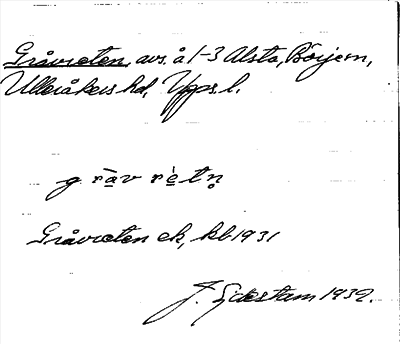 Gråvreten, avs. å 1-3 Alsta, Börjem,
Ulleråkers hd, Upps. l.
gràv rètn
Gråvreten ek, kb 1931
J. Eckstam 1932.